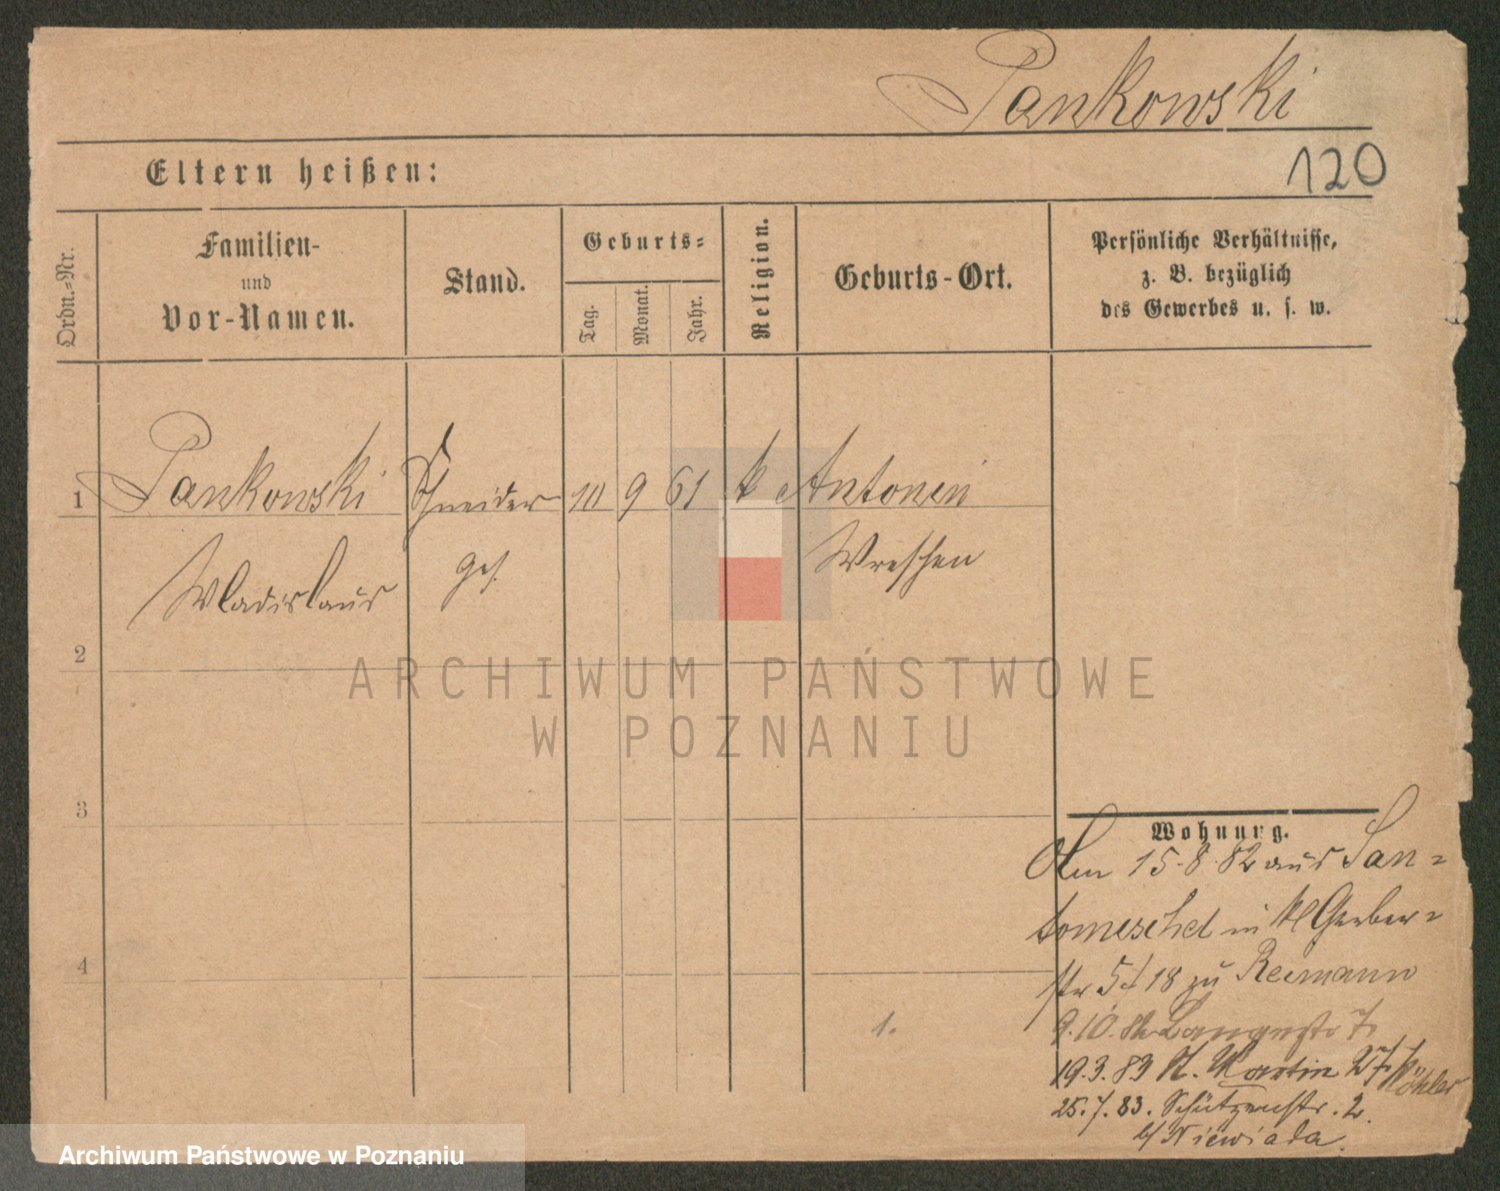 Pankowski
120
Eltern heißen:
Ordn.-Nr.
Familien-
und
Vor-Namen.
Stand.
Geburts-
Tag.
Monat.
Jahr.
Religion.
Geburts-Ort.
Persönliche Verhältnisse,
z. B. bezüglich
des Gewerbes u. s. w.
1 Pankowski Schneider 10 9 61 k Antonin
Wladislaus ges. Wreschen
2
3
4
Wohnung.
Am 15.8.82 aus San-
tomeschel in kl Gerber-
str 5 18 zu Reimann
9.10. Langestr 7
19.3.83 St. Martin Köhler
25.7.83. Schützenstr. 2.
b/ Niewiada.
1.
ARCHIWUM PAŃSTWOWE
W POZNANIU
Archiwum Państwowe w Poznaniu